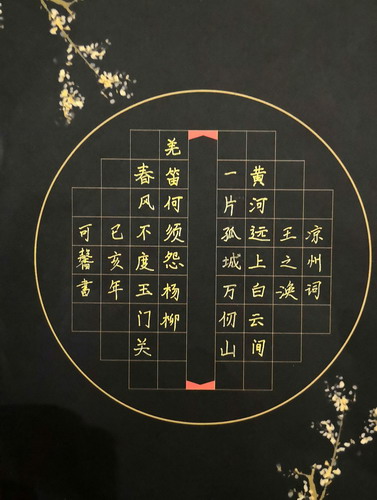 凉州词
王之涣
黄河远上白云间
一片孤城万仞山
羌笛何须怨杨柳
春风不度玉门关
己亥年
可馨书